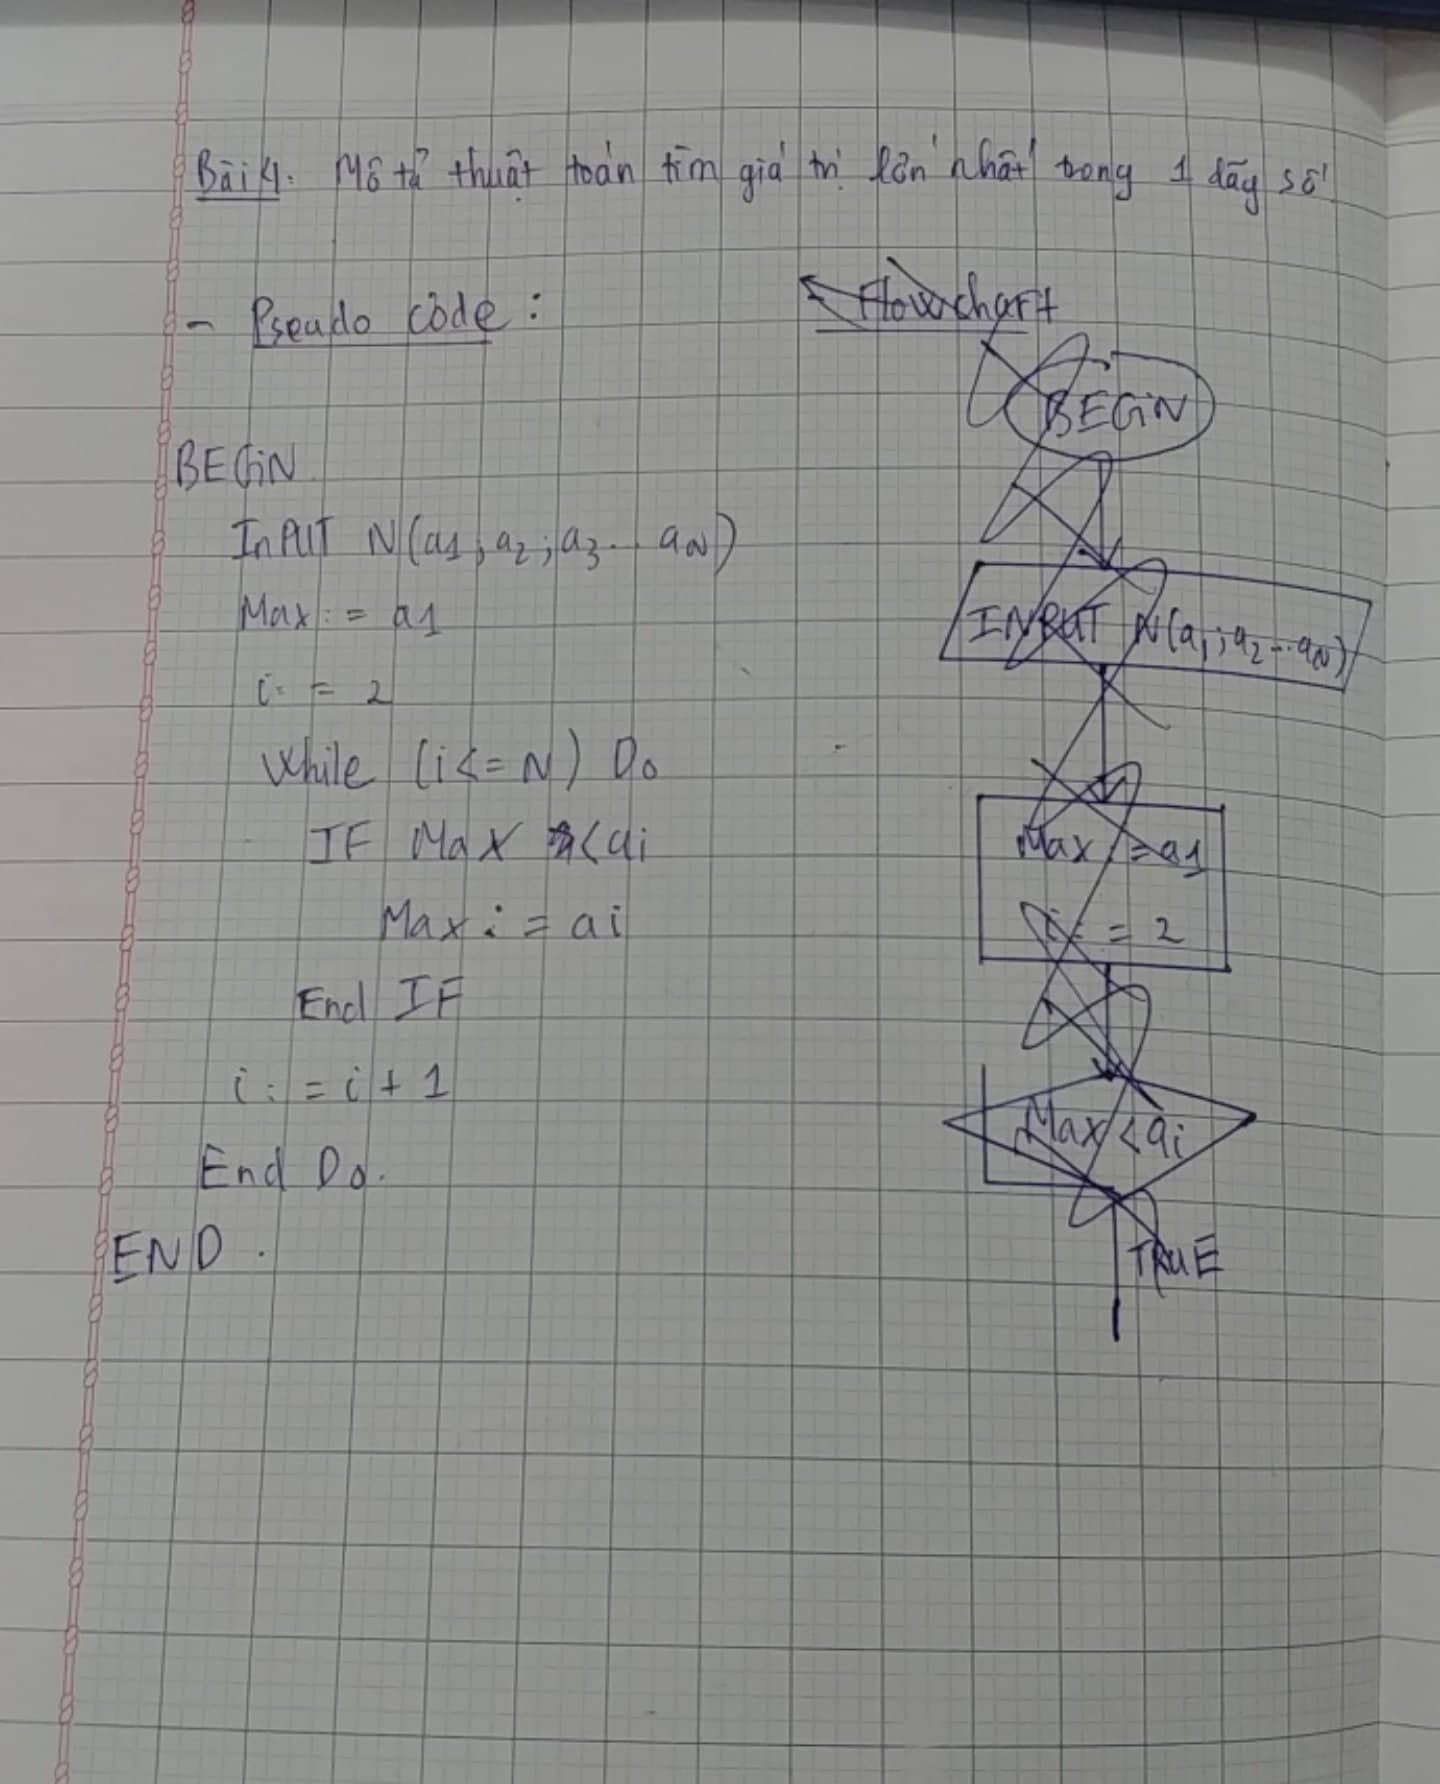 Bài 4. Mô tả thuật toán tìm giá trị lớn nhất trong 1 dãy số
- Pseudo code :
BEGiN
InPUT N(a1; a2; a3... aN)
Max := a1
i := 2
While (i<=N) Do
IF Max < ai
Max := ai
End IF
i := i + 1
End Do.
END .
Flowchart
BEGiN
INPUT N(a1; a2... aN)
Max := a1
i := 2
Max < ai
TRUE